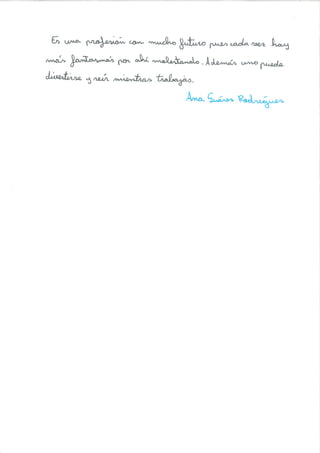 Es una profesión con mucho futuro pues cada vez hay
más fantasmas por ahí molestando. Además uno puede
divertirse y reír mientras trabajas.
Ana Suárez Rodríguez